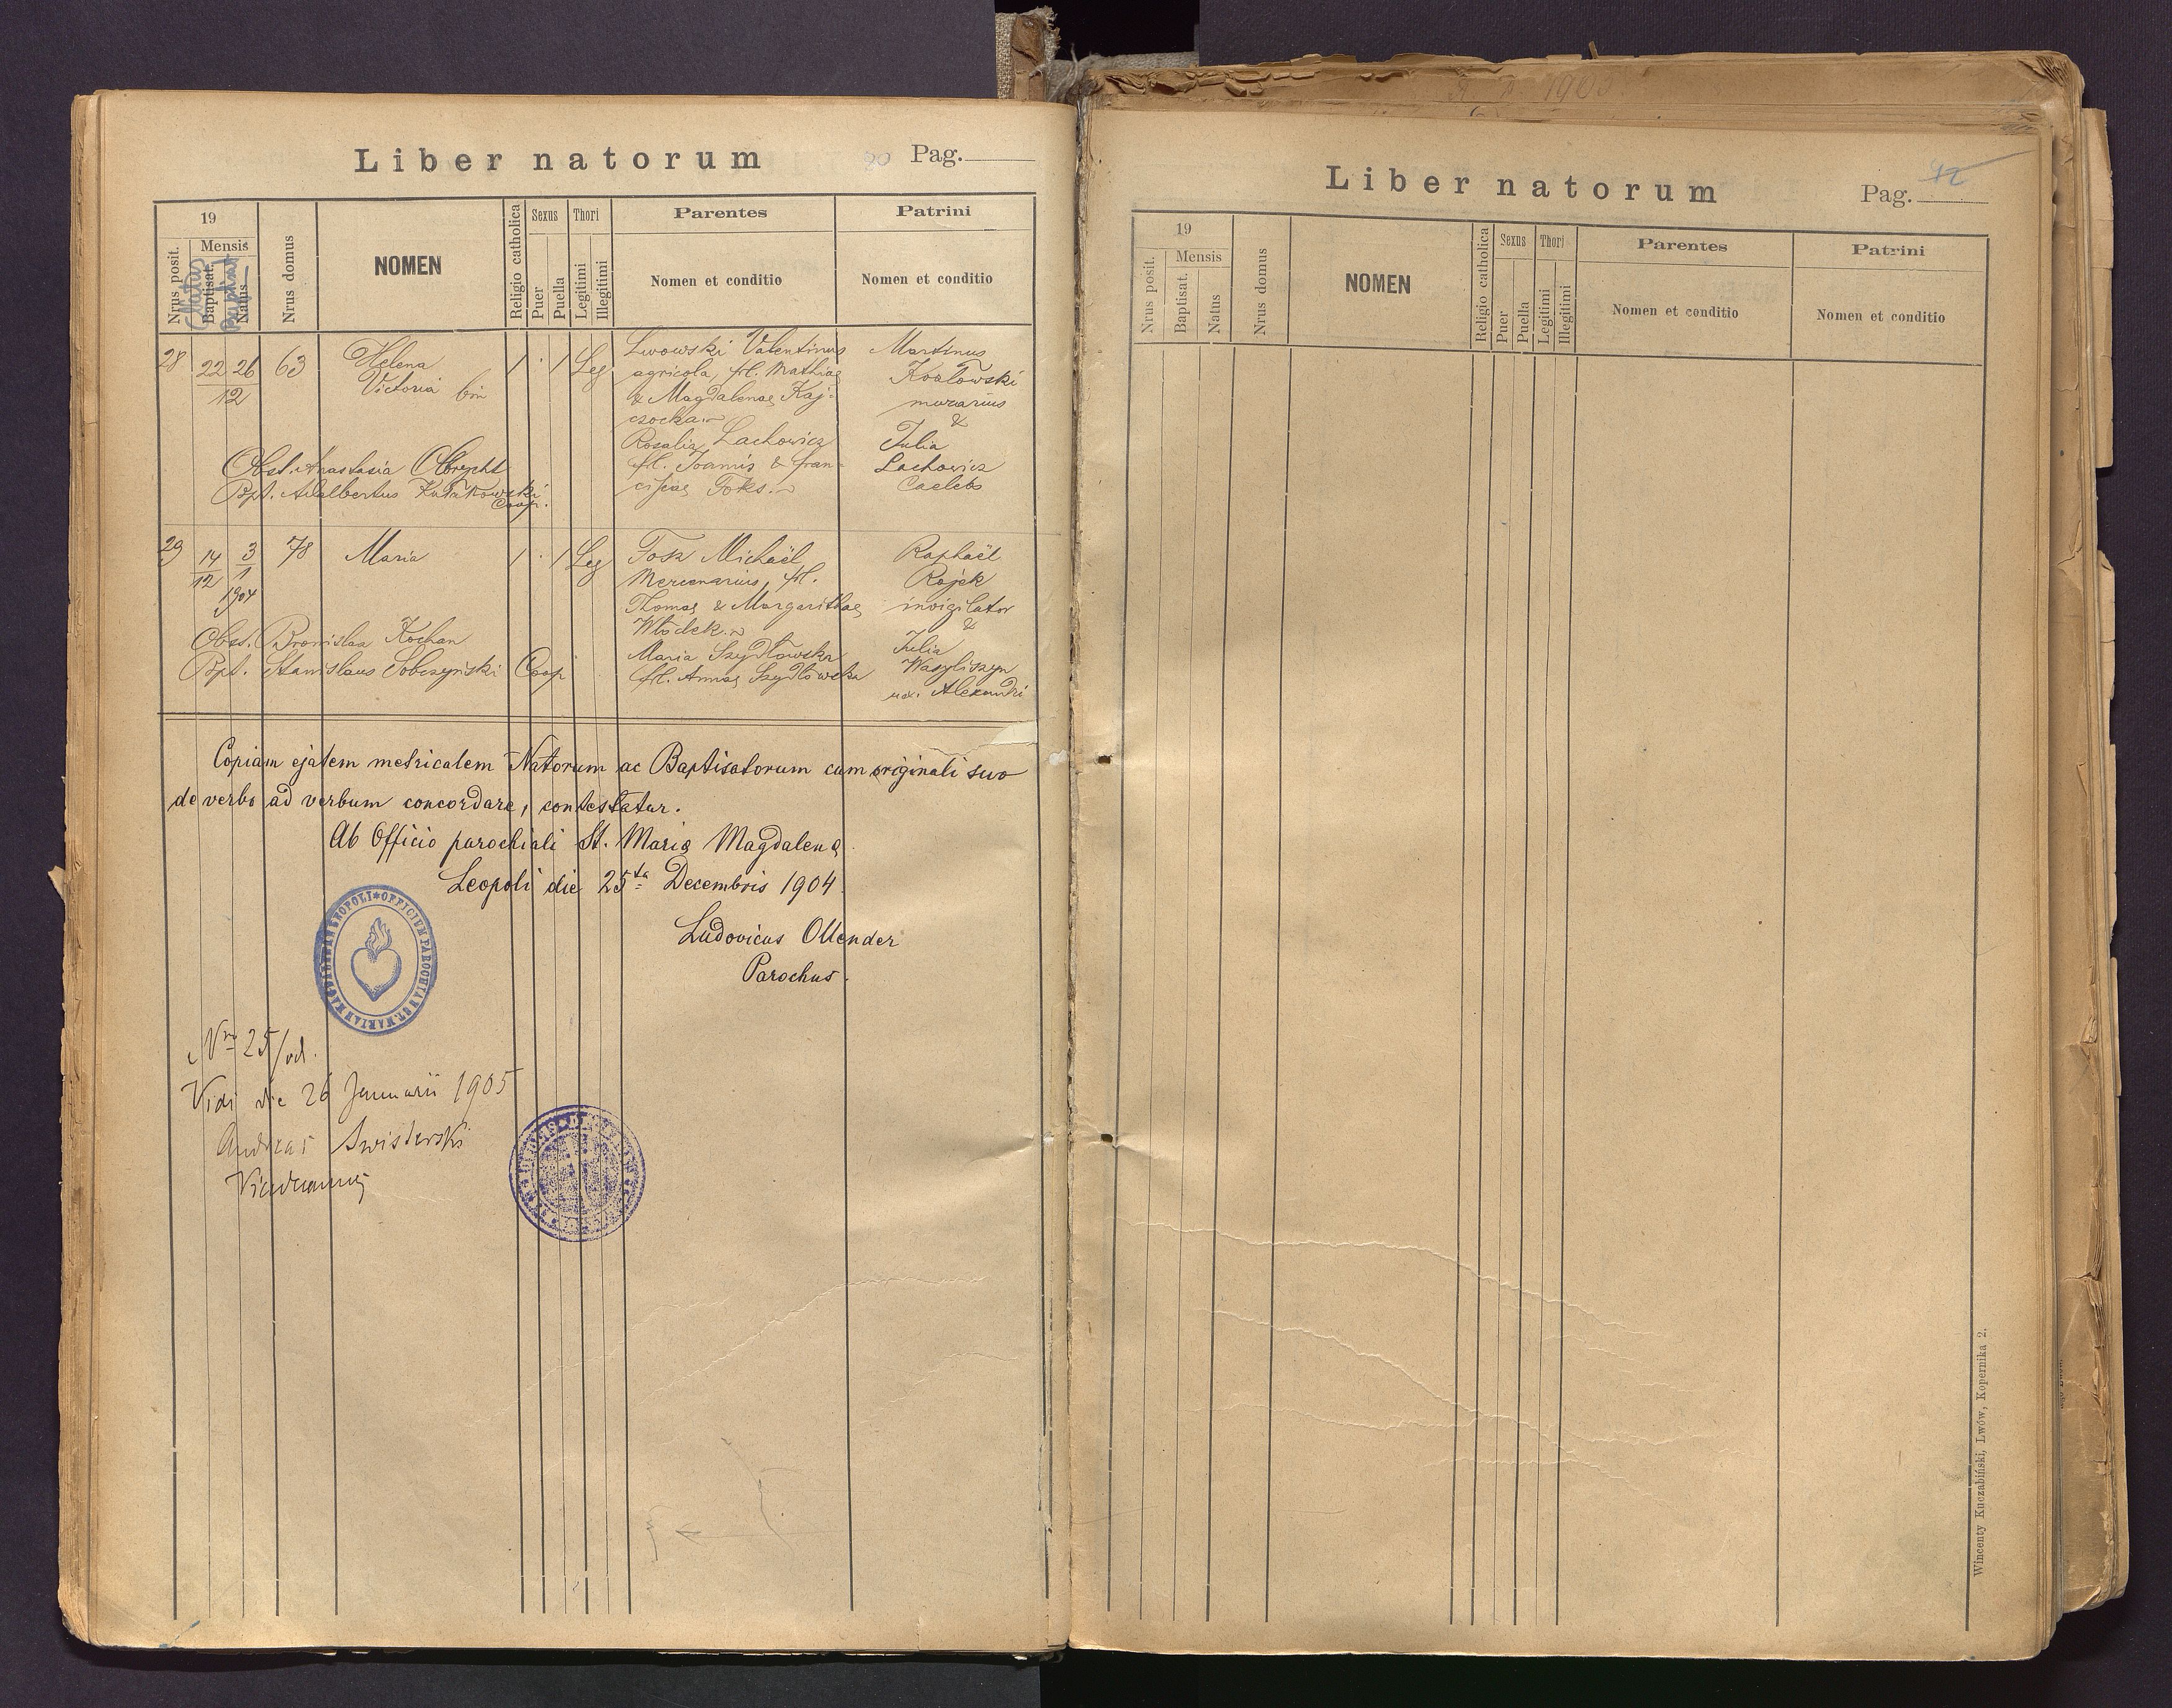 Liber natorum
Pag.
19
Nrus posit.
Mensis
Baptisat.
Natus
Natus
Baptisat
Nrus domus
NOMEN
Religio catholica
Sexus
Puer
Puella
Thori
Legitimi
Illegitimi
Parentes
Nomen et conditio
Patrini
Nomen et conditio
28 22 26 63 Helena 1 · 1 Leg Lwowski Valentinus Martinus
12 Victoria bin agricola, fil. Mathiae Kozłowski
& Magdalenae Kaj- murarius
czocka &
Rosalia Lachowicz Julia
Obst. Anastasia Olbrycht fil. Joannis & Fran- Lachowicz
Bpt. Adalbertus ciscae Foks. Caelebs
Coop.
29 14 3 78 Maria 1 · 1 Leg Tosz Michaël Raphaël
12 1 Mercenarius, fil. Rojek
1904 Thomae & Margarithae invigilator
Włodek. &
Obst. Bronislaa Kochan Maria Szydłowska Julia
Bpt. Stanislaus Sobczyński Coop fil. Annae Szydłowska Wasyliszyn
ux. Alexandri
Copiam ejatem metricalem Natorum ac Baptisatorum cum originali suo
de verbo ad verbum concordare, contestatur.
Ab Officio parochiali St. Mariae Magdalenae
Leopoli die 25ta Decembris 1904.
Ludovicus Ollender
Parochus.
OFFICIUM PAROCHIAE ST. MARIAE MAGDALENAE LEOPOLI
Nro 25/vd.
Vidi die 26 Januarii 1905
Andreas Swisterski
Vicedecanus
Liber natorum
Pag.
12
19
Nrus posit.
Mensis
Baptisat.
Natus
Nrus domus
NOMEN
Religio catholica
Sexus
Puer
Puella
Thori
Legitimi
Illegitimi
Parentes
Nomen et conditio
Patrini
Nomen et conditio
Wincenty Kuczabiński, Lwów, Kopernika 2.